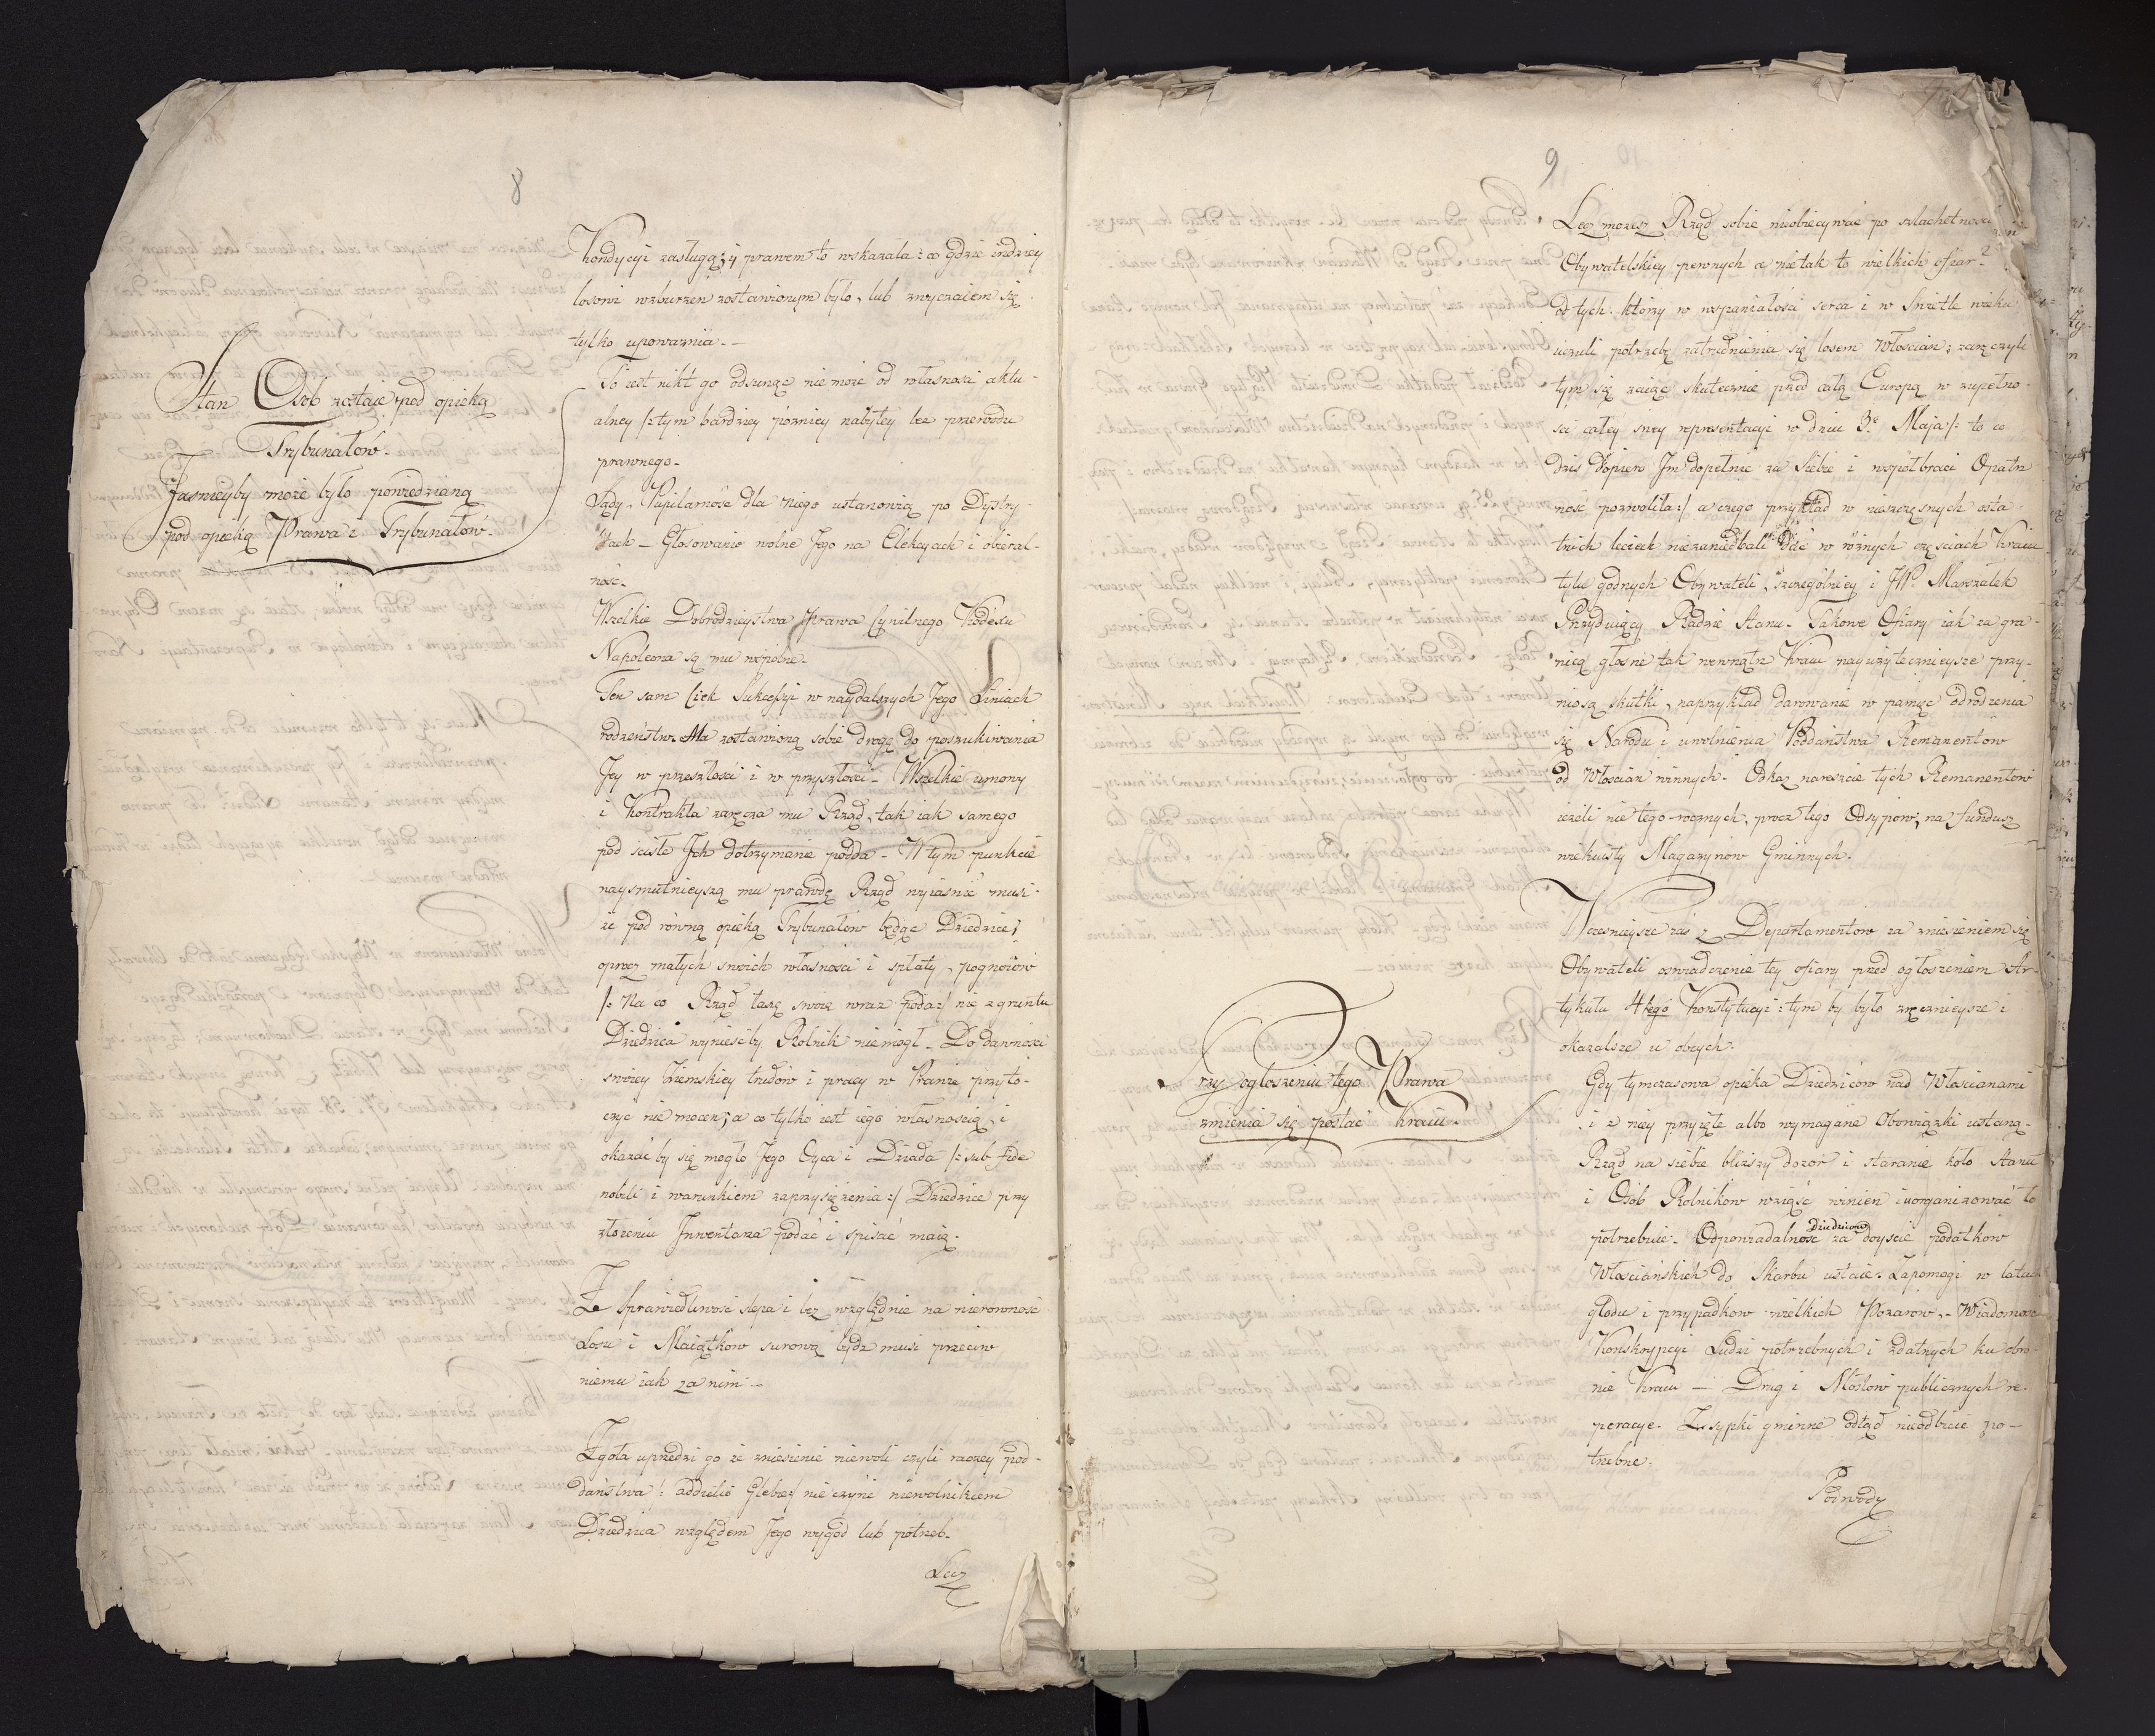 8
Kondycyi zasługą; y prawem to wskazała: co gdzie indziey
losowi wzburzeń zostawionym było, lub zwyczaiem się
tylko upoważnia. —
Stan Osob zostaie pod opieką
Trybunałow.
Jasnieyby może było powiedzianą
pod opieką Prawa i Trybunałow.
To iest nikt go odsunąc nie może od własnosci aktu-
alney /: tym bardziey pozniey nabytey bez przewodu
prawnego.
Sądy, Pupilarnośc dla niego ustanowią po Dystry-
ktach — Głosowanie wolne Jego na Elekcyach i obieral-
nosc.
Wszelkie Dobrodzieystwa Prawa Cywilnego Kodexu
Napoleona są mu wspólne.
Ten sam Ciek Sukcessyi w naydalszych Jego Liniach
rodzeństw. Ma zostawioną sobie drogę do poszukiwania
Jey w przeszłosci i w przyszłosci — Wszelkie umowy
i Kontrakta zaręcza mu Rząd, tak iak samego
pod scisłe Ich dotrzymanie podda — W tym punkcie
naysmutnieyszą mu prawdę Rząd wyiasnic musi-
że pod rowną opieką Trybunałow będąc Dziedzice;
oprocz małych swoich własnosci i spłaty, pognoiow
/: Na co Rząd taxę swoię wraz poda :/ nic z gruntu
Dziedzica wynieśc by Rolnik niemogł — Do dawnosci
swoiey Ziemskiey trudow i pracy w Prawie przyto-
czyc nie mocen; a co tylko iest iego własnoscią, i
okazać by się mogło Jego Oyca i Dziada /: sub fide
nobili i warunkiem zaprzysiężenia :/ Dziedzice przy
złożeniu Inwentarza podać i spisać maią.
Że sprawiedliwosć slepa i bez względnie na nierownosć
Losu i Maiątkow surową bydz musi przeciw
niemu iak za nim —
Zgoła uprzedzi go że zniesienie niewoli czyli raczey pod-
daństwa /: addictio Glebae :/ nie czyni niewolnikiem
Dziedzica względem Jego wygod lub potrzeb.
Lecz
9
Lecz możesz Rząd sobie nieobiecywać po szlachetnosci
Obywatelskiey pewnych a nie tak to wielkich ofiar?
od tych, ktorzy w wspaniałosci serca i w Swietle wieku
uczuli potrzebę zatrudnienia się losem Włoscian; zaręczyli
tym się zaiąc skutecznie przed całą Europą w zupełno-
sci całey swey reprezentacyi w dniu 3o Maja /: to co
dzis dopiero Im dopełnic za siebie i wspołbraci Opatrz
ność pozwoliła :/ a czego przykład w nieszczęsnych osta-
tnich leciech niezaniedbali dać w rożnych częsciach Kraiu
tylu godnych Obywateli, szczegolniey i JW. Marszałek
Prezyduiący Radzie Stanu — Takowe Ofiary iak za gra-
nicą głosne tak wewnątrz Kraiu nayużytecznieysze przy-
niosą skutki, naprzykład darowanie w pamięc odrodzenia
się Narodu i uwolnienia Poddaństwa Remanentow
od Włoscian winnych. Oskaz nareszcie tych Remanentow
ieżeli nie tego-rocznych, procz tego Odsypow, na fundusz
wiekuisty Magazynow Gminnych.
Wczesnieysze zas z Departamentow za zniesieniem się
Obywateli oswiadczenie tey ofiary przed ogłoszeniem Ar-
tykułu 4tego Konstytucyi: tym by było zręcznieysze i
okazalsze w obcych.
Przy ogłoszeniu tego Prawa
zmienia się postać Kraiu.
Gdy tymczasowa opieka Dziedzicow nad Włoscianami
i z niey przyięte albo wymagane Obowiązki ustaną-
Rząd na siebie bliższy dozor i staranie koło Stanu
i Osob Rolnikow wziąść winien i uorganizować to
potrzebuie. Odpowiadalnosc Dziedzicow za doyscie podatkow
Włosciańskich do Skarbu ustaie. Zapomogi w latach
głodu i przypadkow wielkich Pożarow, — Wiadomosc
Konskrypcyi Ludzi potrzebnych i zdatnych ku obro-
nie Kraiu — Drog i Mostow publicznych re-
peracye. Zsypki gminne odtąd nieodbicie po-
trzebne.
Podwody